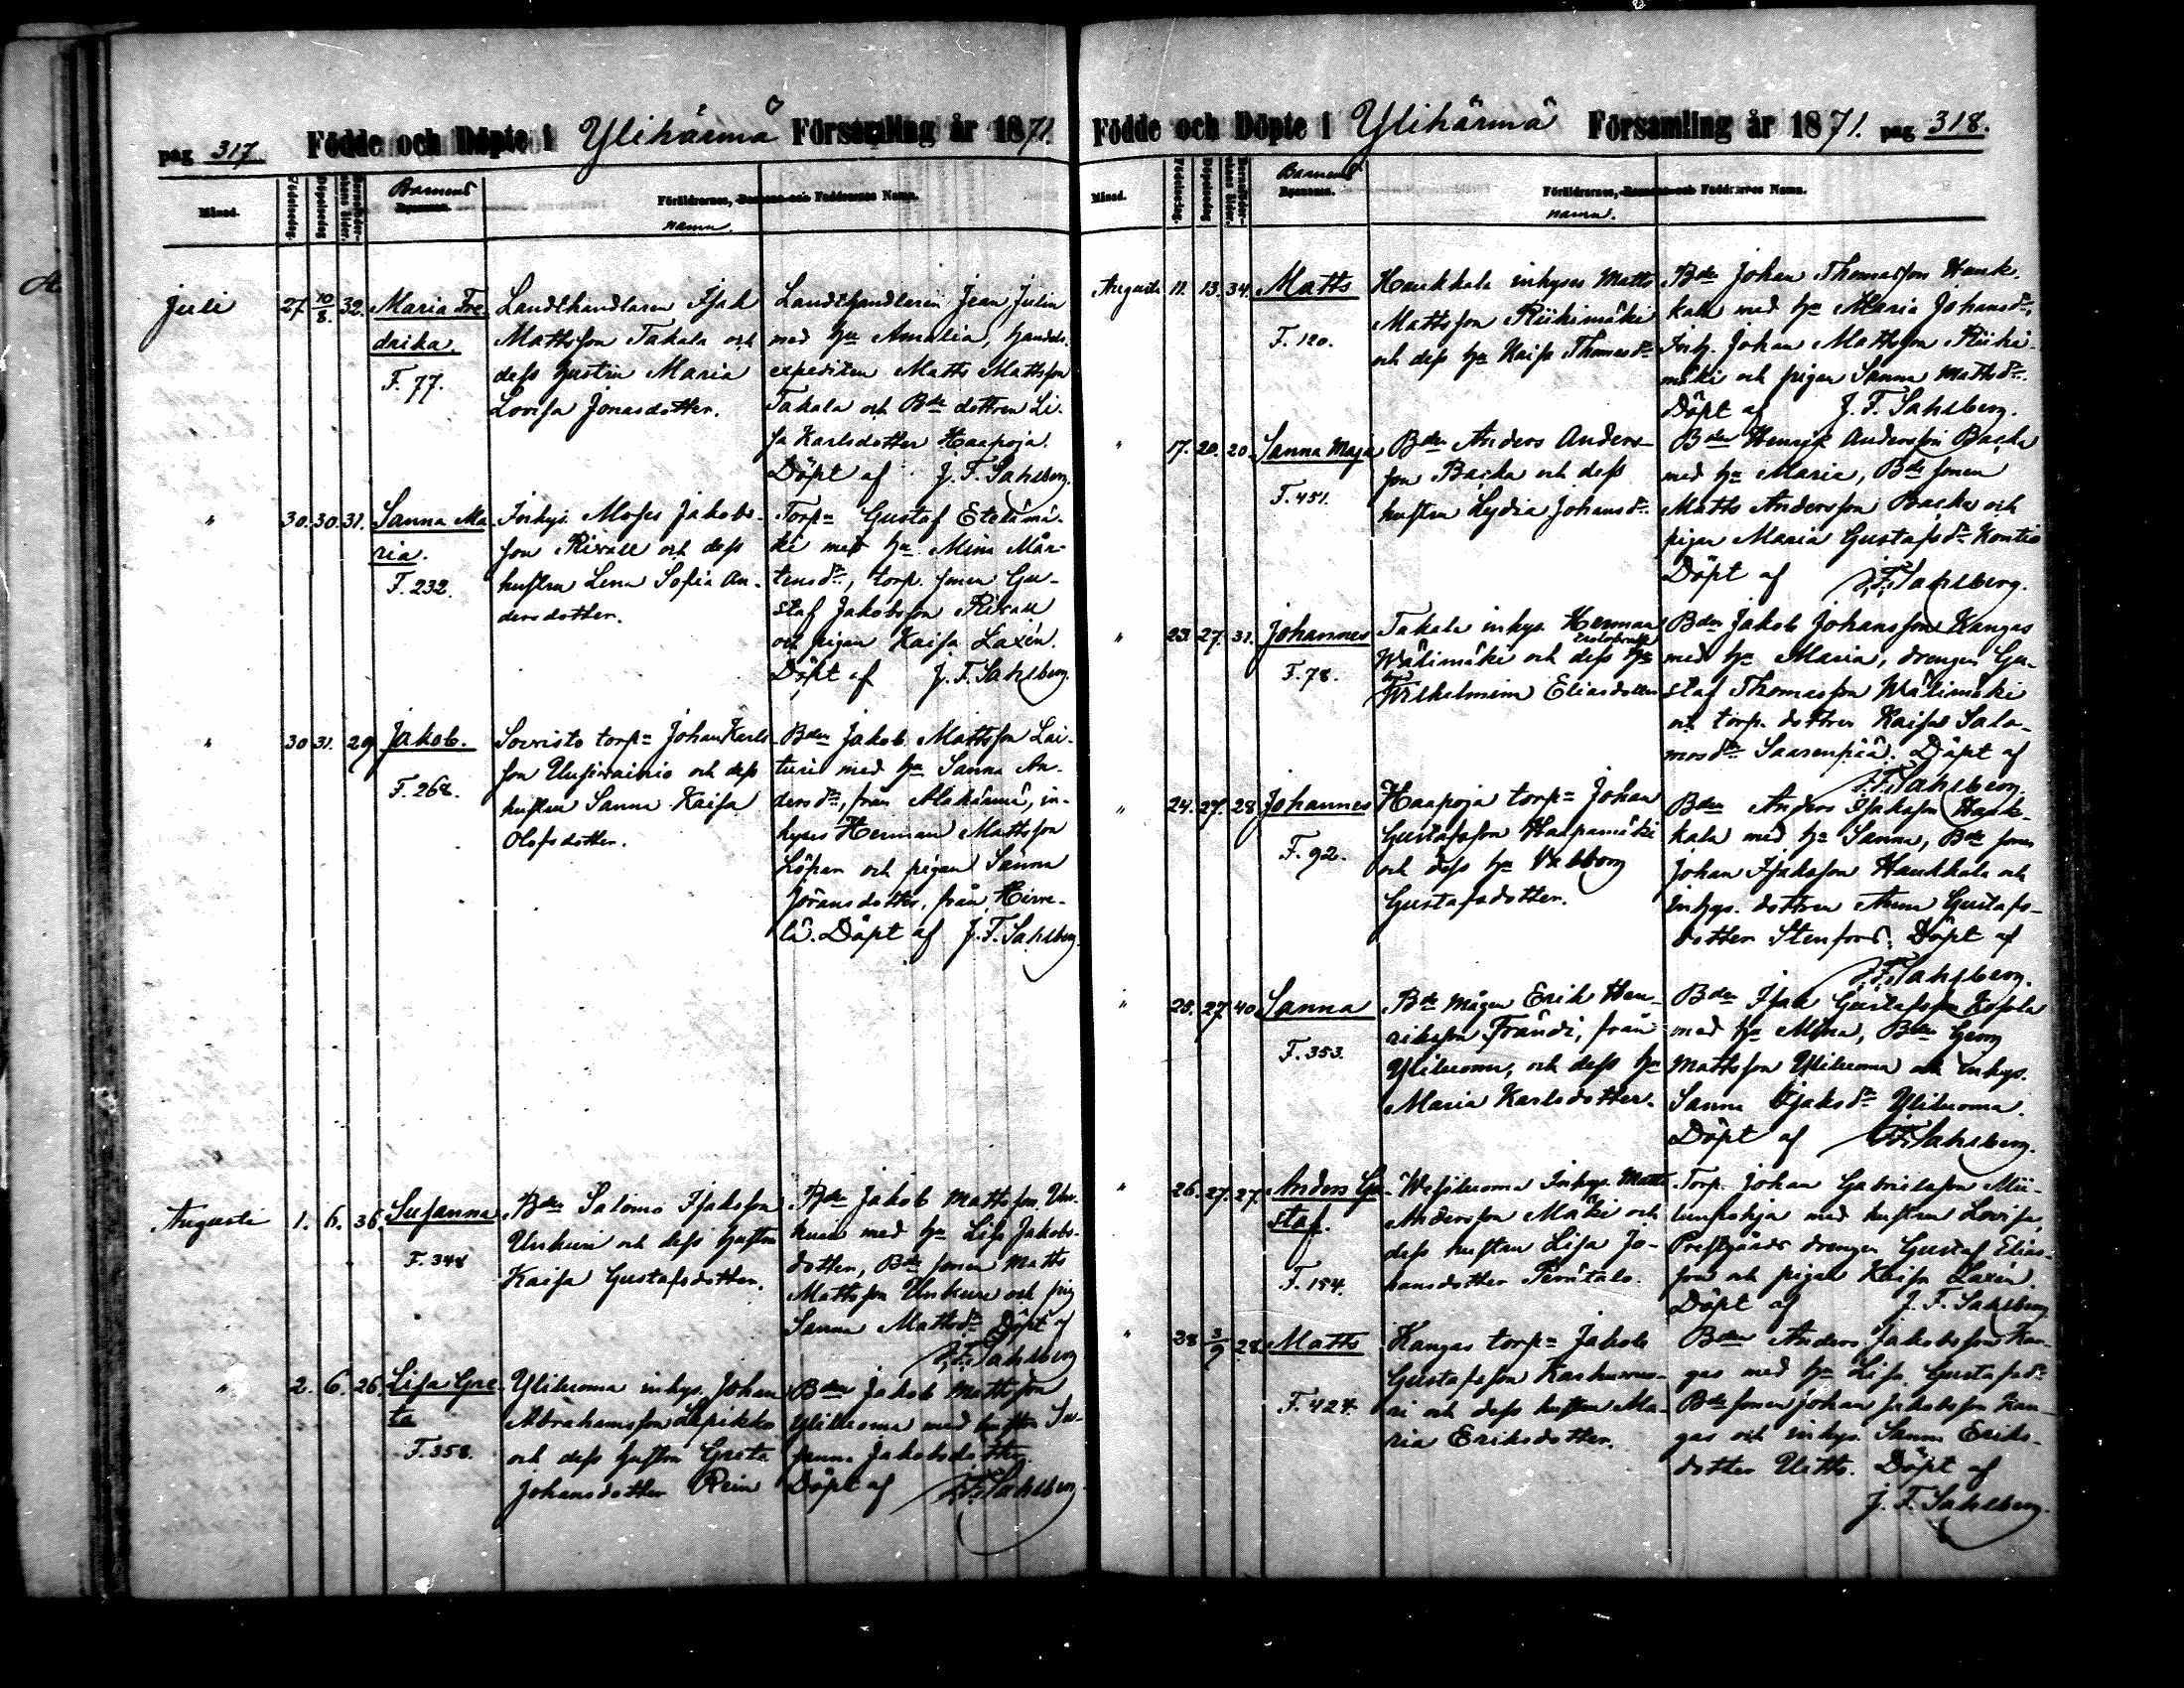 pag 317. Födde och Döpte i Ylihärmä Församling år 1871.
Månad. Födelsedag. Döpelsedag Barnens Föräldrarnes, Faddrarnes Namn.
namn.
Juli 27. 10/8. 32. Maria Fre-
daika.
F. 77.
Landthandlaren Isak
Mattsson Takala och
dess hustru Maria
Lovisa Jonasdotter.
Landthandlaren Jean Julin
med hu Amalia, handels-
expediten Matts Mattsson
Takala och Bde dottren Li-
sa Karlsdotter Haapoja.
Döpt af J. F. Sahlberg.
" 30. 30. 31. Sanna Ma
ria.
F. 232.
Inhys. Moses Jakobs-
son Rivall och dess
hustru Lena Sofia An-
dersdotter.
Torpn Gustaf Etelämä-
ki med hu Mina Mår-
tensdr, torp. sonen Gu-
staf Jakobsson Rivall
och pigan Kaisa Laxén.
Döpt af J. F. Sahlberg.
" 30 31. 29 Jakob.
F. 268.
Sorvisto torpn Johan Karls-
son Uusivainio och dess
hustru Sanna Kaisa
Olofsdotter.
Bden Jakob Mattsson Lai-
turi med hu Sanna An-
dersdr, från Alahärmä, in-
hyses Herman Mattsson
Löpare och pigan Sanna
Jöransdotter, från Hirve-
lä. Döpt af J. F. Sahlberg.
Augusti 1. 6. 36. Susanna
F. 344
Bden Salomo Isaksson
Unkuri och dess hustru
Kaisa Gustafsdotter.
Bden Jakob Mattsson Un-
kuri med hu Lisa Jakobs-
dotter, Bde sonen Matts
Mattsson Unkuri och pig
Sanna Mattsdr Döpt af
J. F. Sahlberg
" 2. 6. 26. Lisa Gre-
ta
F. 358.
Yliluoma inhys. Johan
Abrahamsson Lepikko
och dess hustru Greta
Johansdotter Rein
Bden Jakob Mattsson
Yliluoma med hustru Su-
sanna Jakobsdotter
Döpt af J. F. Sahlberg
Födde och Döpte i Ylihärmä Församling år 1871. pag 318.
Månad. Födelsedag. Döpelsedag Barnens Föräldrarnes, Faddrarnes Namn.
namn.
Augusti 11. 13. 34. Matts
F. 120.
Haukkala inhyses Matts
Mattsson Riihimäki
och dess hu Kaisa Thomasdr
Bden Johan Thomasson Hauk-
kala med hu Maria Johansdr,
Inh. Johan Mattsson Riihi-
mäki och pigan Sanna Mattsdr.
Döpt af J. F. Sahlberg.
" 17. 20. 20. Sanna Maja
F. 451.
Bden Anders Anders-
son Backa och dess
hustru Lydia Johansdr
Bden Henrik Andersson Backa
med hu Maria, Bde sonen
Matts Andersson Backa och
pigan Maria Gustafsdr Kontio
Döpt af J. F. Sahlberg.
" 23. 27. 31. Johannes
F. 78.
Takala inhys. Herman
Wälimäki och dess hu
Wilhelmina Eliasdotter
Bden Jakob Johansson Kangas
med hu Maria, drengen Gu-
staf Thomasson Wälimäki
och torp. dottren Kaisa Salo-
mosdr Saarenpää. Döpt af
J. F. Sahlberg.
" 24. 27. 28. Johannes
F. 92.
Haapoja torpn Johan
Gustafsson Haapamäki
och dess hu Valborg
Gustafsdotter.
Bden Anders Isaksson Hauk-
kala med hu Sanna, Bde sonen
Johan Isaksson Haukkala och
Inhys. dottren Anna Gustafs-
dotter Stenfors. Döpt af
J. F. Sahlberg.
" 25. 27. 40 Sanna
F. 353.
Bde mågen Erik Hen-
riksson Frändi, från
Yliluoma, och dess hu
Maria Karlsdotter.
Bden Isak Gustafsson Kosola
med hu Mina, Bden Georg
Mattsson Yliluoma och inhys.
Sanna Isaksdr Yliluoma.
Döpt af J. F. Sahlberg.
" 26. 27. 27. Anders Gu-
staf.
F. 154.
Wesiluoma Inhys. Matts
Andersson Mäki och
dess hustru Lisa Jo-
hansdotter Perätalo.
Torp. Johan Gabrielsson Mii-
lunpohja med hustru Lovisa,
Prestgårds drengen Gustaf Elias-
son och pigan Kaisa Laxén.
Döpt af J. F. Sahlberg
" 28 3/9 28. Matts
F. 424.
Kangas torpn Jakob
Gustafsson Karhunnu-
ri och dess hustru Ma-
ria Eriksdotter.
Bden Anders Jakobsson Kan-
gas med hu Lisa Gustafsdr
Bde sonen Johan Jakobsson Kan-
gas och inhys. Sanna Eriks-
dotter Uitto. Döpt af
J. F. Sahlberg.